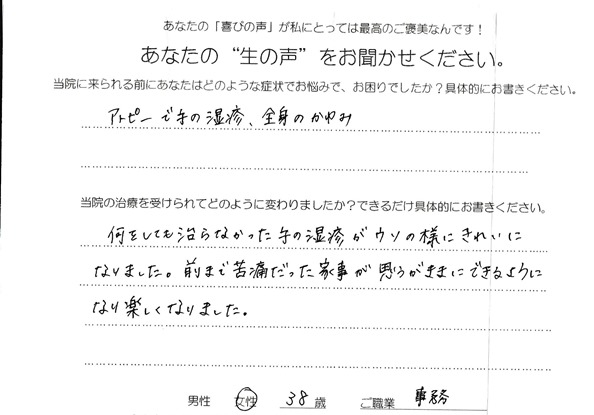 あなたの「喜びの声」が私にとっては最高のご褒美なんです！
あなたの“生の声”をお聞かせください。
当院に来られる前にあなたはどのような症状でお悩みで、お困りでしたか？具体的にお書きください。
アトピーで手の湿疹、全身のかゆみ
当院の治療を受けられてどのように変わりましたか？できるだけ具体的にお書きください。
何をしても治らなかった手の湿疹がウソの様にきれいに
なりました。前まで苦痛だった家事が思うがままにできるように
なり楽しくなりました。
男性 女性 38歳 ご職業 事務